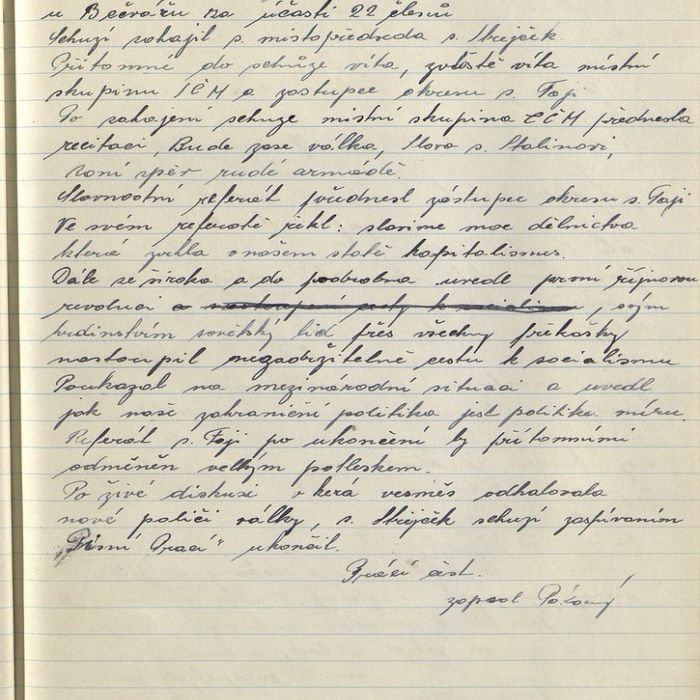 u Bečvářů za účasti 22 členů
Schuzí zahajil s. místopředseda s. Střejček.
Přítomné do schůze vítá, zvláště vítá místní
skupinu SČM a zástupce okresu s. Faji
Po zahajení schuze místní skupina SČM přednesla
recitaci, Bude zase válka, Slovo s. Stalinovi,
zpěv rudé armádě.
Slavnostní referát přednesl zástupce okresu s. Faji
Ve svém referatě řekl: slavíme moc dělnictva
která v našem státě kapitalismus.
Dále ze široka a do podrobna uvedl první říjnovou
revoluci a nastoupení cesty k socialismu, svým
hrdinstvím sovětský lid přes všechny překažky
nastoupil nezadržitelně cestu k socialismu
Poukazal na mezinárodní situaci a uvedl
jak naše zahraniční politika jest politika míru.
Referát s. Faji po ukončení by přítomními
odměněn velkým potleskem.
Po živé diskuzi v kerá vesměs odhalovala
nové paliči války, s. Střejček schuzí zaspívaním
„Písní Prací" ukončil.
Práci čest.
zapsal